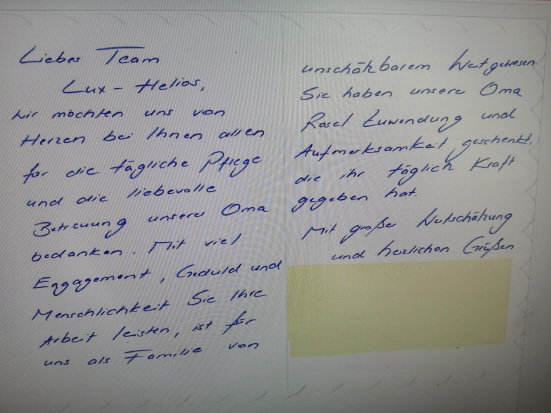 Liebes Team
Lux-Helios,
wir möchten uns von
Herzen bei Ihnen allen
für die tägliche Pflege
und die liebevolle
Betreuung unsere Oma
bedanken. Mit viel
Engagement, Geduld und
Menschlichkeit Sie Ihre
Arbeit leisten, ist für
uns als Familie von
unschätzbarem Wert gewesen.
Sie haben unsere Oma
Rosel Zuwendung und
Aufmerksamkeit geschenkt,
die ihr täglich Kraft
gegeben hat.
Mit großer Wertschätzung
und herzlichen Grüßen